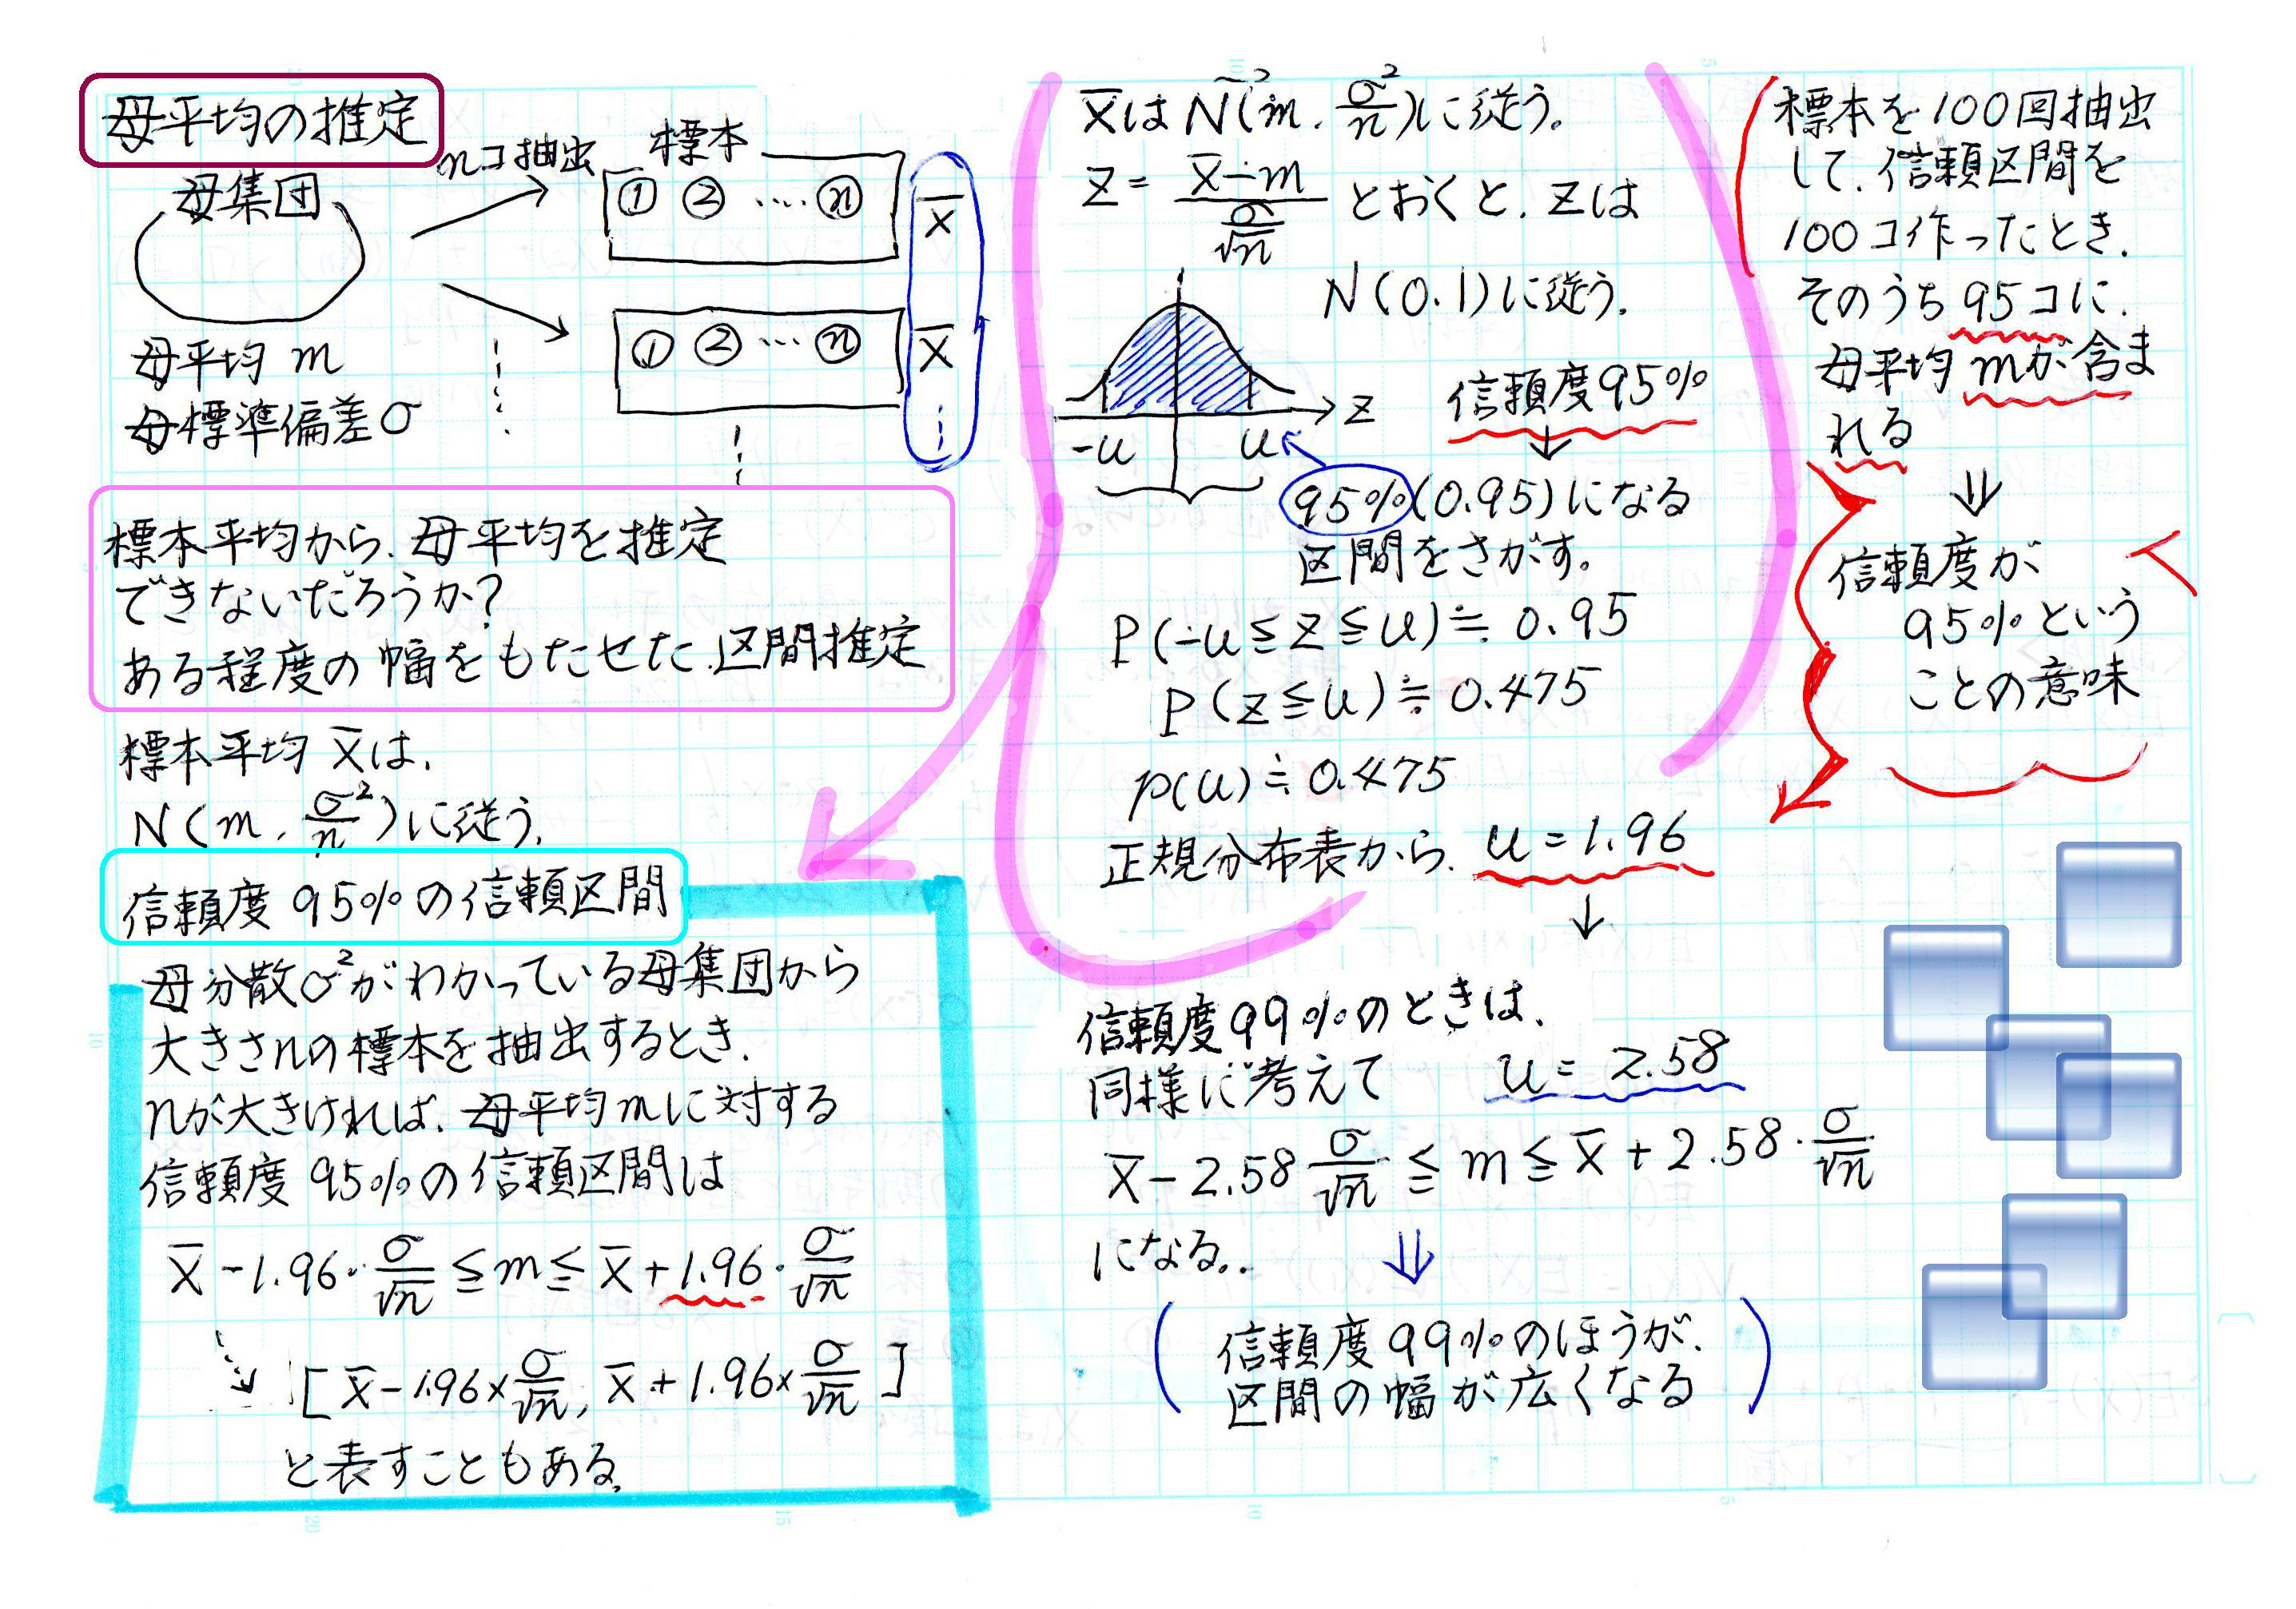 母平均の推定
母集団
nコ抽出
標本
① ② ‥‥ ⓝ
X̄
① ② ‥‥ ⓝ
X̄
母平均 m
母標準偏差σ
標本平均から、母平均を推定
できないだろうか?
ある程度の幅をもたせた、区間推定
標本平均 X̄は、
N(m, σ²/n)に従う。
信頼度 95%の信頼区間
母分散σ²がわかっている母集団から
大きさnの標本を抽出するとき、
nが大きければ、母平均mに対する
信頼度 95%の信頼区間は
X̄-1.96・σ/√n≦m≦X̄+1.96・σ/√n
[X̄-1.96×σ/√n, X̄+1.96×σ/√n]
と表すこともある。
X̄はN(m, σ²/n)に従う。
Z=(X̄-m)/(σ/√n) とおくと、Zは
N(0,1)に従う。
Z
-u u
信頼度95%
↓
95%(0.95)になる
区間をさがす。
P(-u≦Z≦u)≒0.95
P(Z≦u)≒0.475
p(u)≒0.475
正規分布表から、u=1.96
↓
信頼度99%のときは、
同様に考えて u=2.58
X̄-2.58σ/√n≦m≦X̄+2.58・σ/√n
になる。
⇓
(信頼度99%のほうが、
区間の幅が広くなる)
標本を100回抽出
して、信頼区間を
100コ作ったとき、
そのうち95コに、
母平均mが含ま
れる
⇓
信頼度が
95%という
ことの意味